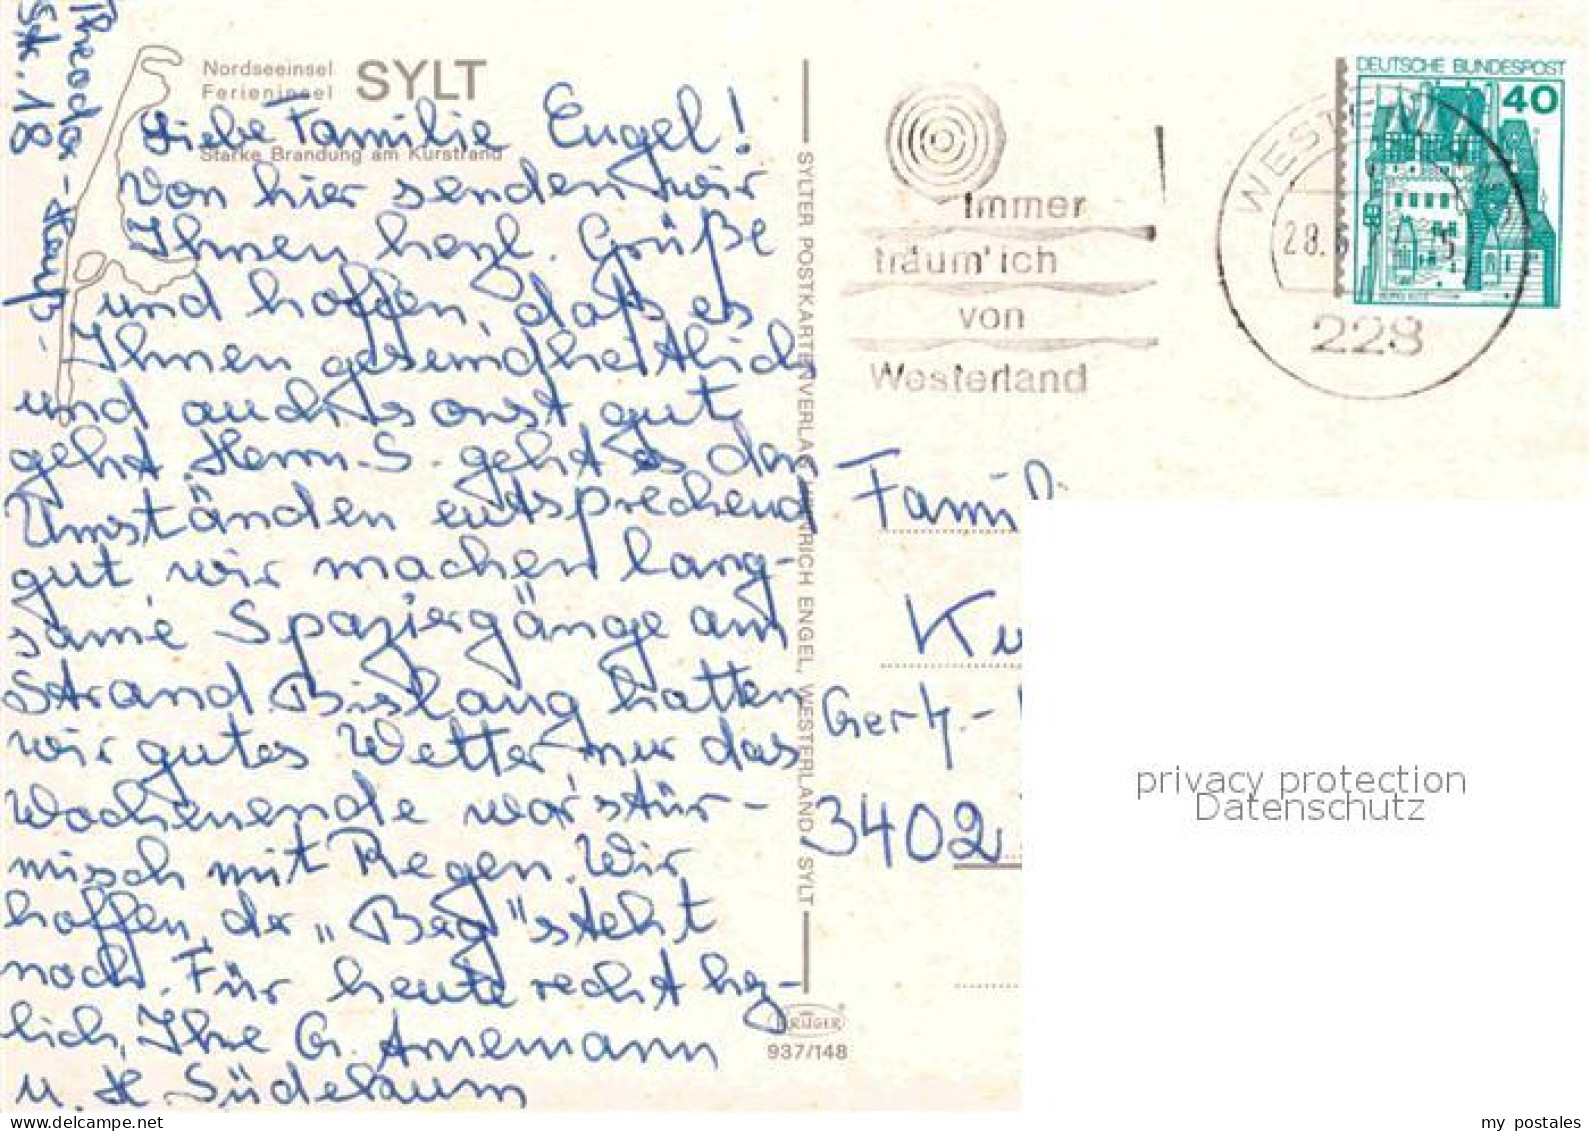 Theodor-
Str. 18
Nordseeinsel
Ferieninsel SYLT
Starke Brandung am Kurstrand
Liebe Familie Engel!
Von hier senden wir
Ihnen herzl. Grüße
und hoffen, daß es
Ihnen gesundheitlich
und auch sonst gut
geht. Herrn S. geht es den
Umständen entsprechend
gut, wir machen lang-
same Spaziergänge am
Strand. Bislang hatten
wir gutes Wetter, nur das
Wochenende war's stür-
misch mit Regen. Wir
hoffen, der "Berg" steht
noch. Für heute recht herz-
lich, Ihre G. Arnemann
u. H. Südekum
SYLTER POSTKARTENVERLAG HINRICH ENGEL, WESTERLAND SYLT
KRÜGER
937/148
Immer
träum' ich
von
Westerland
WESTERLAND
28.
228
DEUTSCHE BUNDESPOST
40
BURG ELTZ
Famil
Ku
Gertz.-
3402
privacy protection
Datenschutz
my postales